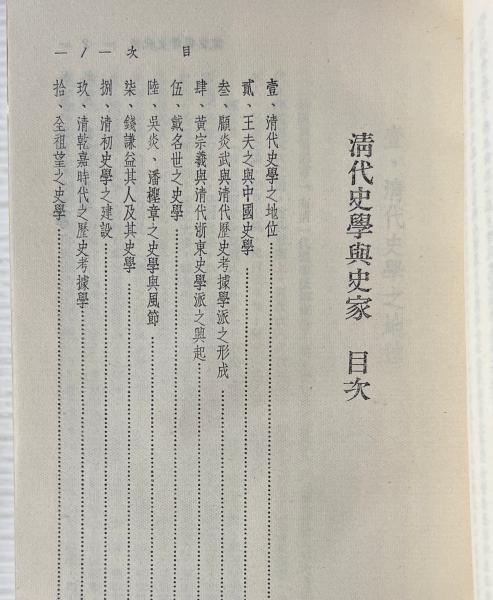 清代史學與史家　目次
壹、清代史學之地位
貳、王夫之與中國史學
叁、顧炎武與清代歷史考據學派之形成
肆、黃宗羲與清代浙東史學派之興起
伍、戴名世之史學
陸、吳炎、潘檉章之史學與風節
柒、錢謙益其人及其史學
捌、清初史學之建設
玖、清乾嘉時代之歷史考據學
拾、全祖望之史學
目　次　一／一